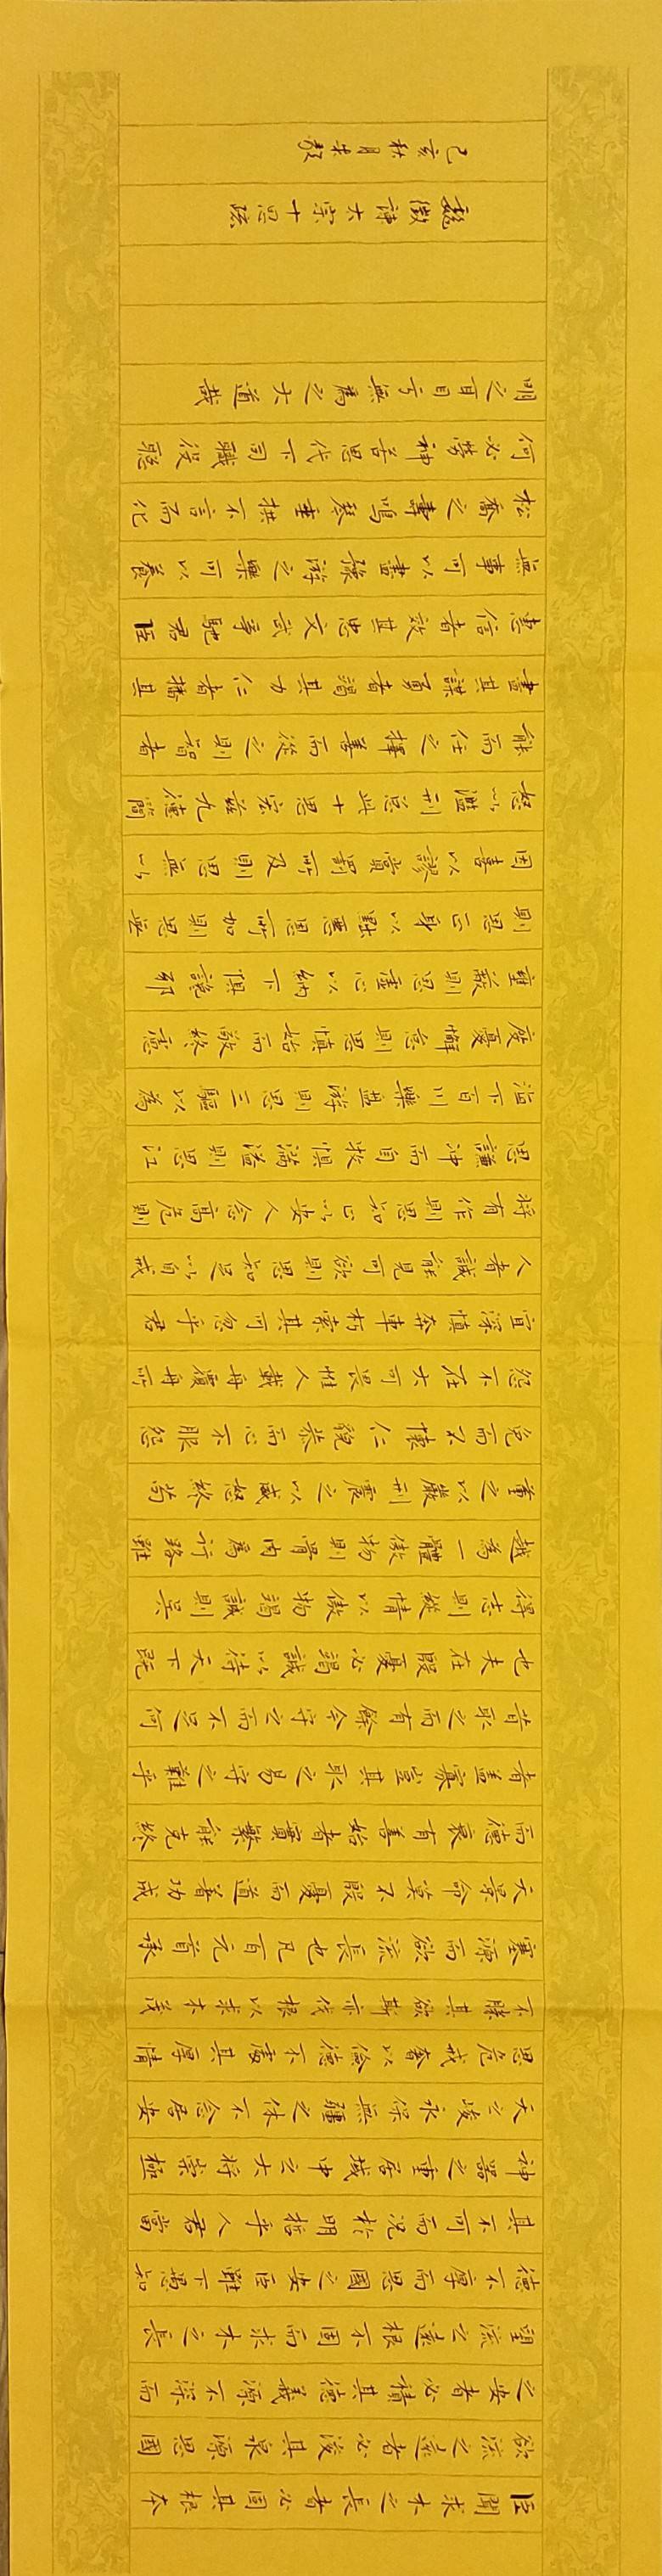 臣聞求木之長者必固其根本
欲流之遠者必浚其泉源思國
之安者必積其德義源不深而
望流之遠根不固而求木之長
德不厚而思國之安臣雖下愚知
其不可而況於明哲乎人君當
神器之重居域中之大將崇極
天之峻永保無疆之休不念居安
思危戒奢以儉德不處其厚情
不勝其欲斯亦伐根以求木茂
塞源而欲流長也凡百元首承
天景命莫不殷憂而道著功成
而德衰有善始者實繁能克終
者蓋寡豈其取之易守之難乎
昔取之而有餘今守之而不足何
也夫在殷憂必竭誠以待天下既
得志則縱情以傲物竭誠則吳
越為一體傲物則骨肉為行路雖
董之以嚴刑震之以威怒終苟
免而不懷仁貌恭而心不服怨
怨不在大可畏惟人載舟覆舟所
宜深慎奔車朽索其可忽乎君
人者誠能見可欲則思知足以自戒
將有作則思知止以安人念高危則
思謙沖而自牧懼滿溢則思江
海下百川樂盤游則思三驅以為
度憂懈怠則思慎始而敬終慮
壅蔽則思虛心以納下懼讒邪
則思正身以黜惡恩所加則思無
因喜以謬賞罰所及則思無以
怒以濫刑總此十思宏茲九德簡
能而任之擇善而從之則智者
盡其謀勇者竭其力仁者播其
惠信者效其忠文武爭馳君臣
無事可以盡豫游之樂可以養
松喬之壽鳴琴垂拱不言而化
何必勞神苦思代下司職役聰
明之耳目亏無為之大道哉
魏徵諫太宗十思疏
己亥秋月朱毅